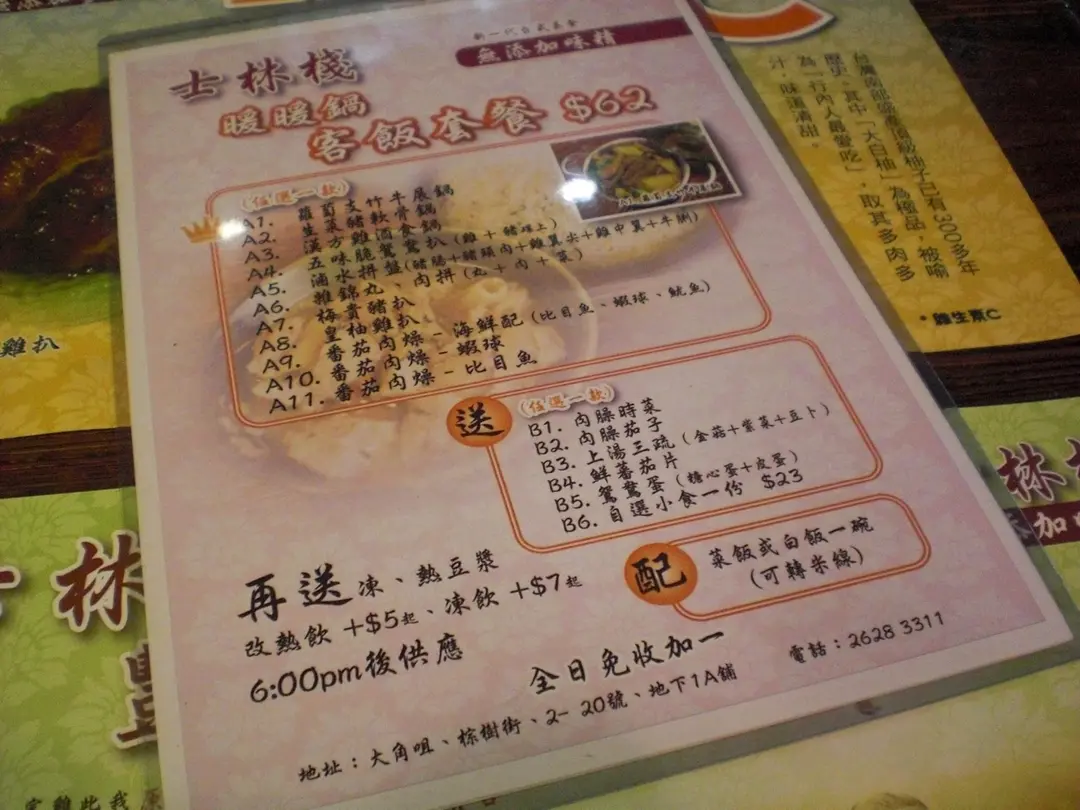 新一代台式美食
無添加味精
士林棧
暖暖鍋
客飯套餐 $62
(任選一款)
A1. 蘿蔔支竹牛展鍋
A2. 生菜豬軟骨鍋
A3. 漢方雞酒食鍋
A4. 五味脆鴛鴦扒(雞+豬
A5. 滷水拼盤(豬腸+豬頸肉+雞翼尖+雞中翼+牛脷)
A6. 雜錦丸、肉拼(丸+肉+菜)
A7. 梅貴豬扒
A8. 皇柚雞扒
A9. 番茄肉燥-海鮮配(比目魚、蝦球、魷魚)
A10. 番茄肉燥-蝦球
A11. 番茄肉燥-比目魚
送
(任選一款)
B1. 肉臊時菜
B2. 肉臊茄子
B3. 上湯三疏(金菇+紫菜+豆卜)
B4. 鮮蕃茄片
B5. 鴛鴦蛋(糖心蛋+皮蛋)
B6. 自選小食一份 $23
配
菜飯或白飯一碗
(可轉米線)
再送凍、熱豆漿
改熱飲 +$5起、凍飲 +$7起
6:00pm後供應
全日免收加一
電話:2628 3311
地址:大角咀、棕樹街、2-20號、地下1A舖
台灣南部盛產頂級柚子已有300多年
歷史。其中「大白柚」為極品,被喻
為「行內人最愛吃」,取其多肉多
汁,味道清甜。
•維生素C
雞扒
林
加
林